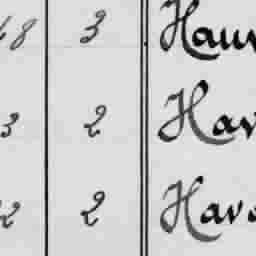 48 3 Hau
3 2 Hav
2 2 Hav